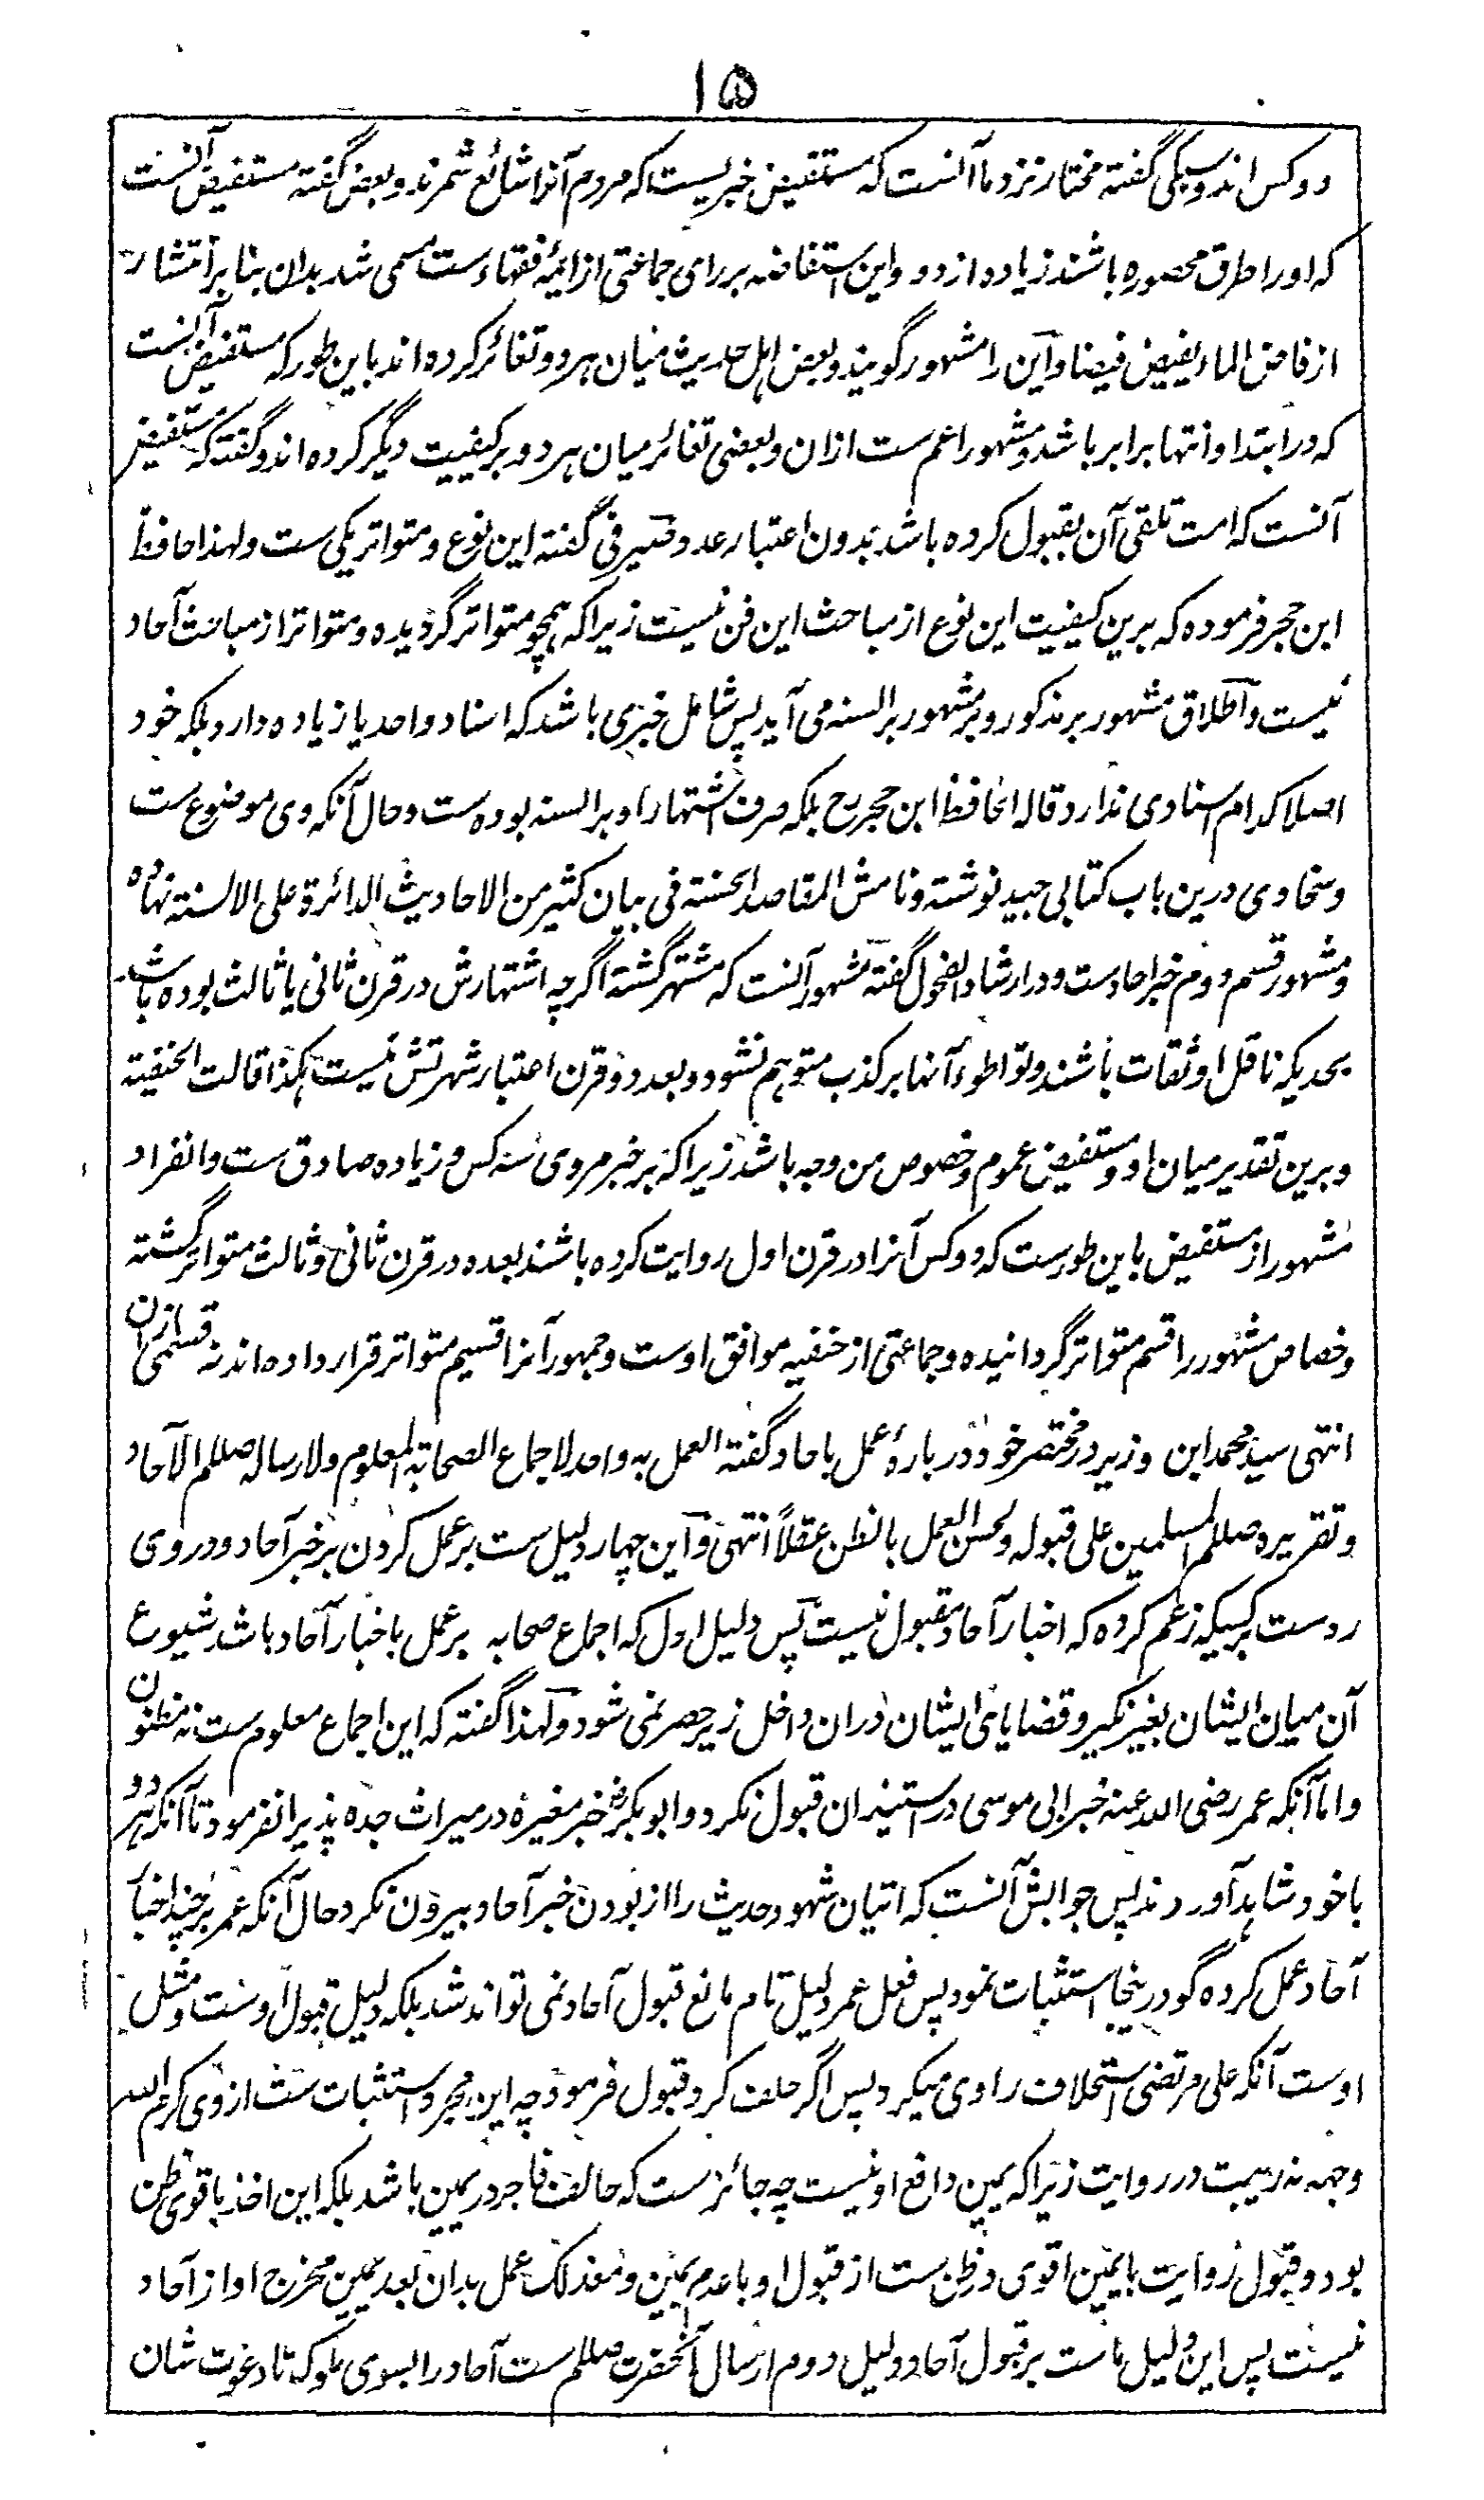 ۱۵
دو کس اند و سبکی گفته مختار نزد ما آنست که مستفیض خبریست که مردم آنرا شائع شمرند و بعض گفته مستفیض آنست
که او را طرق محصوره باشند زیاده از دو و این استفاضه بر رای جماعتی از ائمهٔ فقهاء ست مسمی شد بدان بنا بر انتشار
از فاض الماء یفیض فیضا و این را مشهور گویند و بعض اهل حدیث میان هر دو تغائر کرده اند باین طور که مستفیض آنست
که در ابتدا و انتها برابر باشد و مشهور اعم ست ازان و بعضی تغائر میان هر دو بر کیفیت دیگر کرده اند و گفته که مستفیض
آنست که امت تلقی آن بقبول کرده باشد بدون اعتبار عدد و صیرفی گفته این نوع و متواتر یکی ست و لهذا حافظ
ابن حجر فرموده که برین کیفیت این نوع از مباحث این فن نیست زیرا که همچو متواتر گردیده و متواتر از مباحث آحاد
نیست و اطلاق مشهور بر مذکور و بر مشهور بر السنه می آید پس شامل خبری باشد که اسناد واحد یا زیاده دارد بلکه خود
اصلا کدام اسنادی ندارد قاله الحافظ ابن حجر رح بلکه صرف اشتهار او بر السنه بوده ست و حال آنکه وی موضوع ست
و سخاوی درین باب کتابی جید نوشته و نامش المقاصد الحسنة فی بیان کثیر من الاحادیث الدائرة علی الالسنة نهاده
و مشهور قسم دوم خبر احادست و در ارشاد الفحول گفته مشهور آنست که مشتهر گشته اگرچه اشتهارش در قرن ثانی یا ثالث بوده باشد
بحدیکه ناقل او ثقات باشند و تواطوء آنها بر کذب متوهم نشود و بعد دو قرن اعتبار شهرتش نیست هکذا قالت الحنفیة
و برین تقدیر میان او و مستفیض عموم و خصوص من وجه باشد زیرا که بر خبر مروی سه کس و زیاده صادق ست و انفراد
مشهور از مستفیض باین طورست که دو کس آنرا در قرن اول روایت کرده باشند بعده در قرن ثانی و ثالث متواتر گشته
و خصاص مشهور را قسم متواتر گردانیده و جماعتی از حنفیه موافق اوست و جمهور آنرا قسیم متواتر قرار داده اند نه قسمی ازان
انتهی سید محمد ابن وزیر در مختصر خود دربارهٔ عمل باحاد گفته العمل به واحد لاجماع الصحابة المعلوم ولارساله صللم الآحاد
و تقریره صللم المسلمین علی قبوله و لحسن العمل بالظن عقلاً انتهی و این چهار دلیل ست بر عمل کردن بر خبر آحاد و در وی
ردست بر کسیکه زعم کرده که اخبار آحاد مقبول نیست پس دلیل اول که اجماع صحابه بر عمل باخبار آحاد باشد شیوع
آن میان ایشان بغیر نکیر و قضایای ایشان دران داخل زیر حصر نمی شود و لهذا گفته که این اجماع معلوم ست نه مظنون
و اما آنکه عمر رضی الله عنه خبر ابی موسی در استیذان قبول نکرد و ابو بکر رض خبر مغیره در میراث جده پذیرا نفرمود تا آنکه هر دو
با خود شاهد آوردند پس جوابش آنست که اتیان شهود حدیث را از بودن خبر آحاد بیرون نکرد حال آنکه عمر بر چند اخبار
آحاد عمل کرده گو درینجا استثبات نمود پس فعل عمر دلیل تام مانع قبول آحاد نمی تواند شد بلکه دلیل قبول اوست و مثل
اوست آنکه علی مرتضی استحلاف راوی میکرد پس اگر حلف کرد قبول فرمود چه این مجرد استثبات ست از وی کرم الله
وجهه نه ریبت در روایت زیرا که یمین دافع او نیست چه جائزست که حالف فاجر در یمین باشد بلکه این اخذ باقوی ظن
بود و قبول روایت بایمین اقوی در ظن ست از قبول او با عدم یمین و معذلک عمل بدان بعد یمین مخرج او از آحاد
نیست پس این دلیل ماست بر قبول آحاد و دلیل دوم ارسال آنحضرت صللم ست آحاد را بسوی ملوک تا دعوت شان